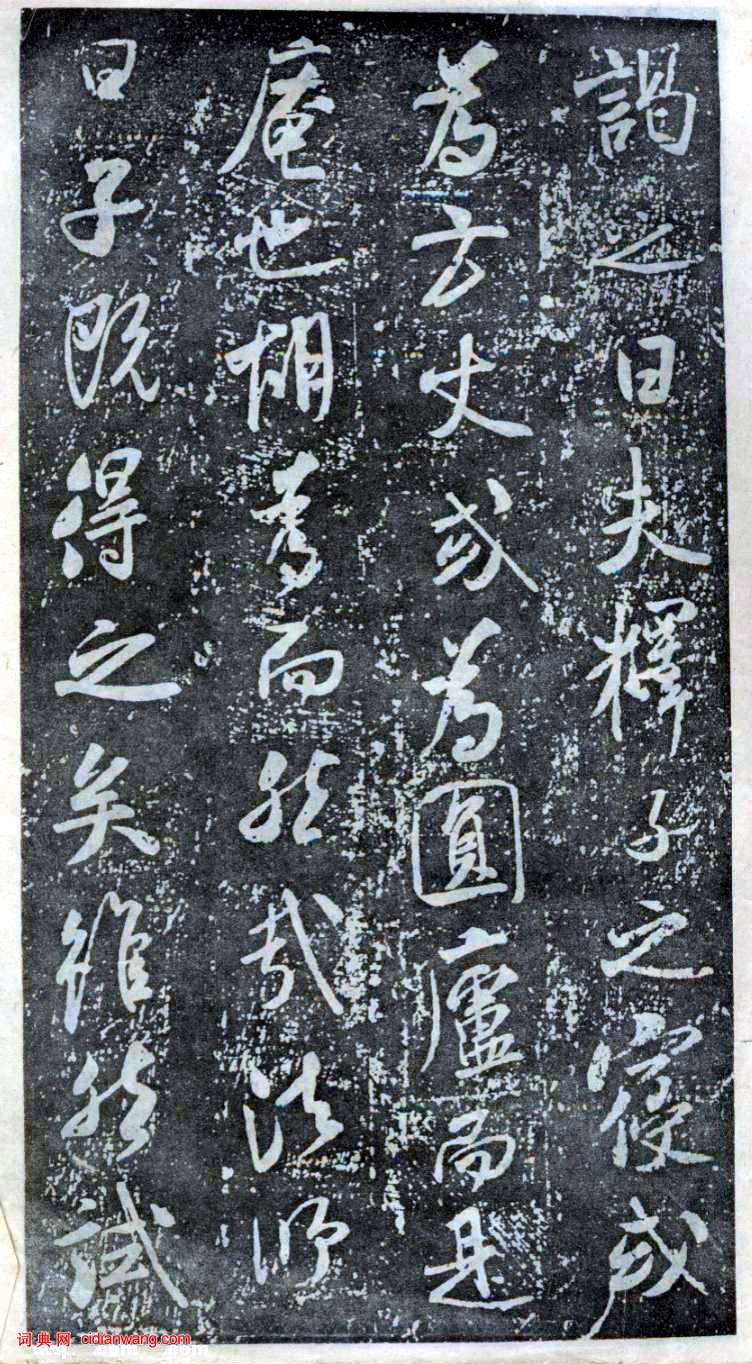 謁之曰夫釋子之寢或
為方丈或為圓廬而是
庵也胡為而然哉法師
曰子既得之矣雖然試
词典网:cidianwang.com